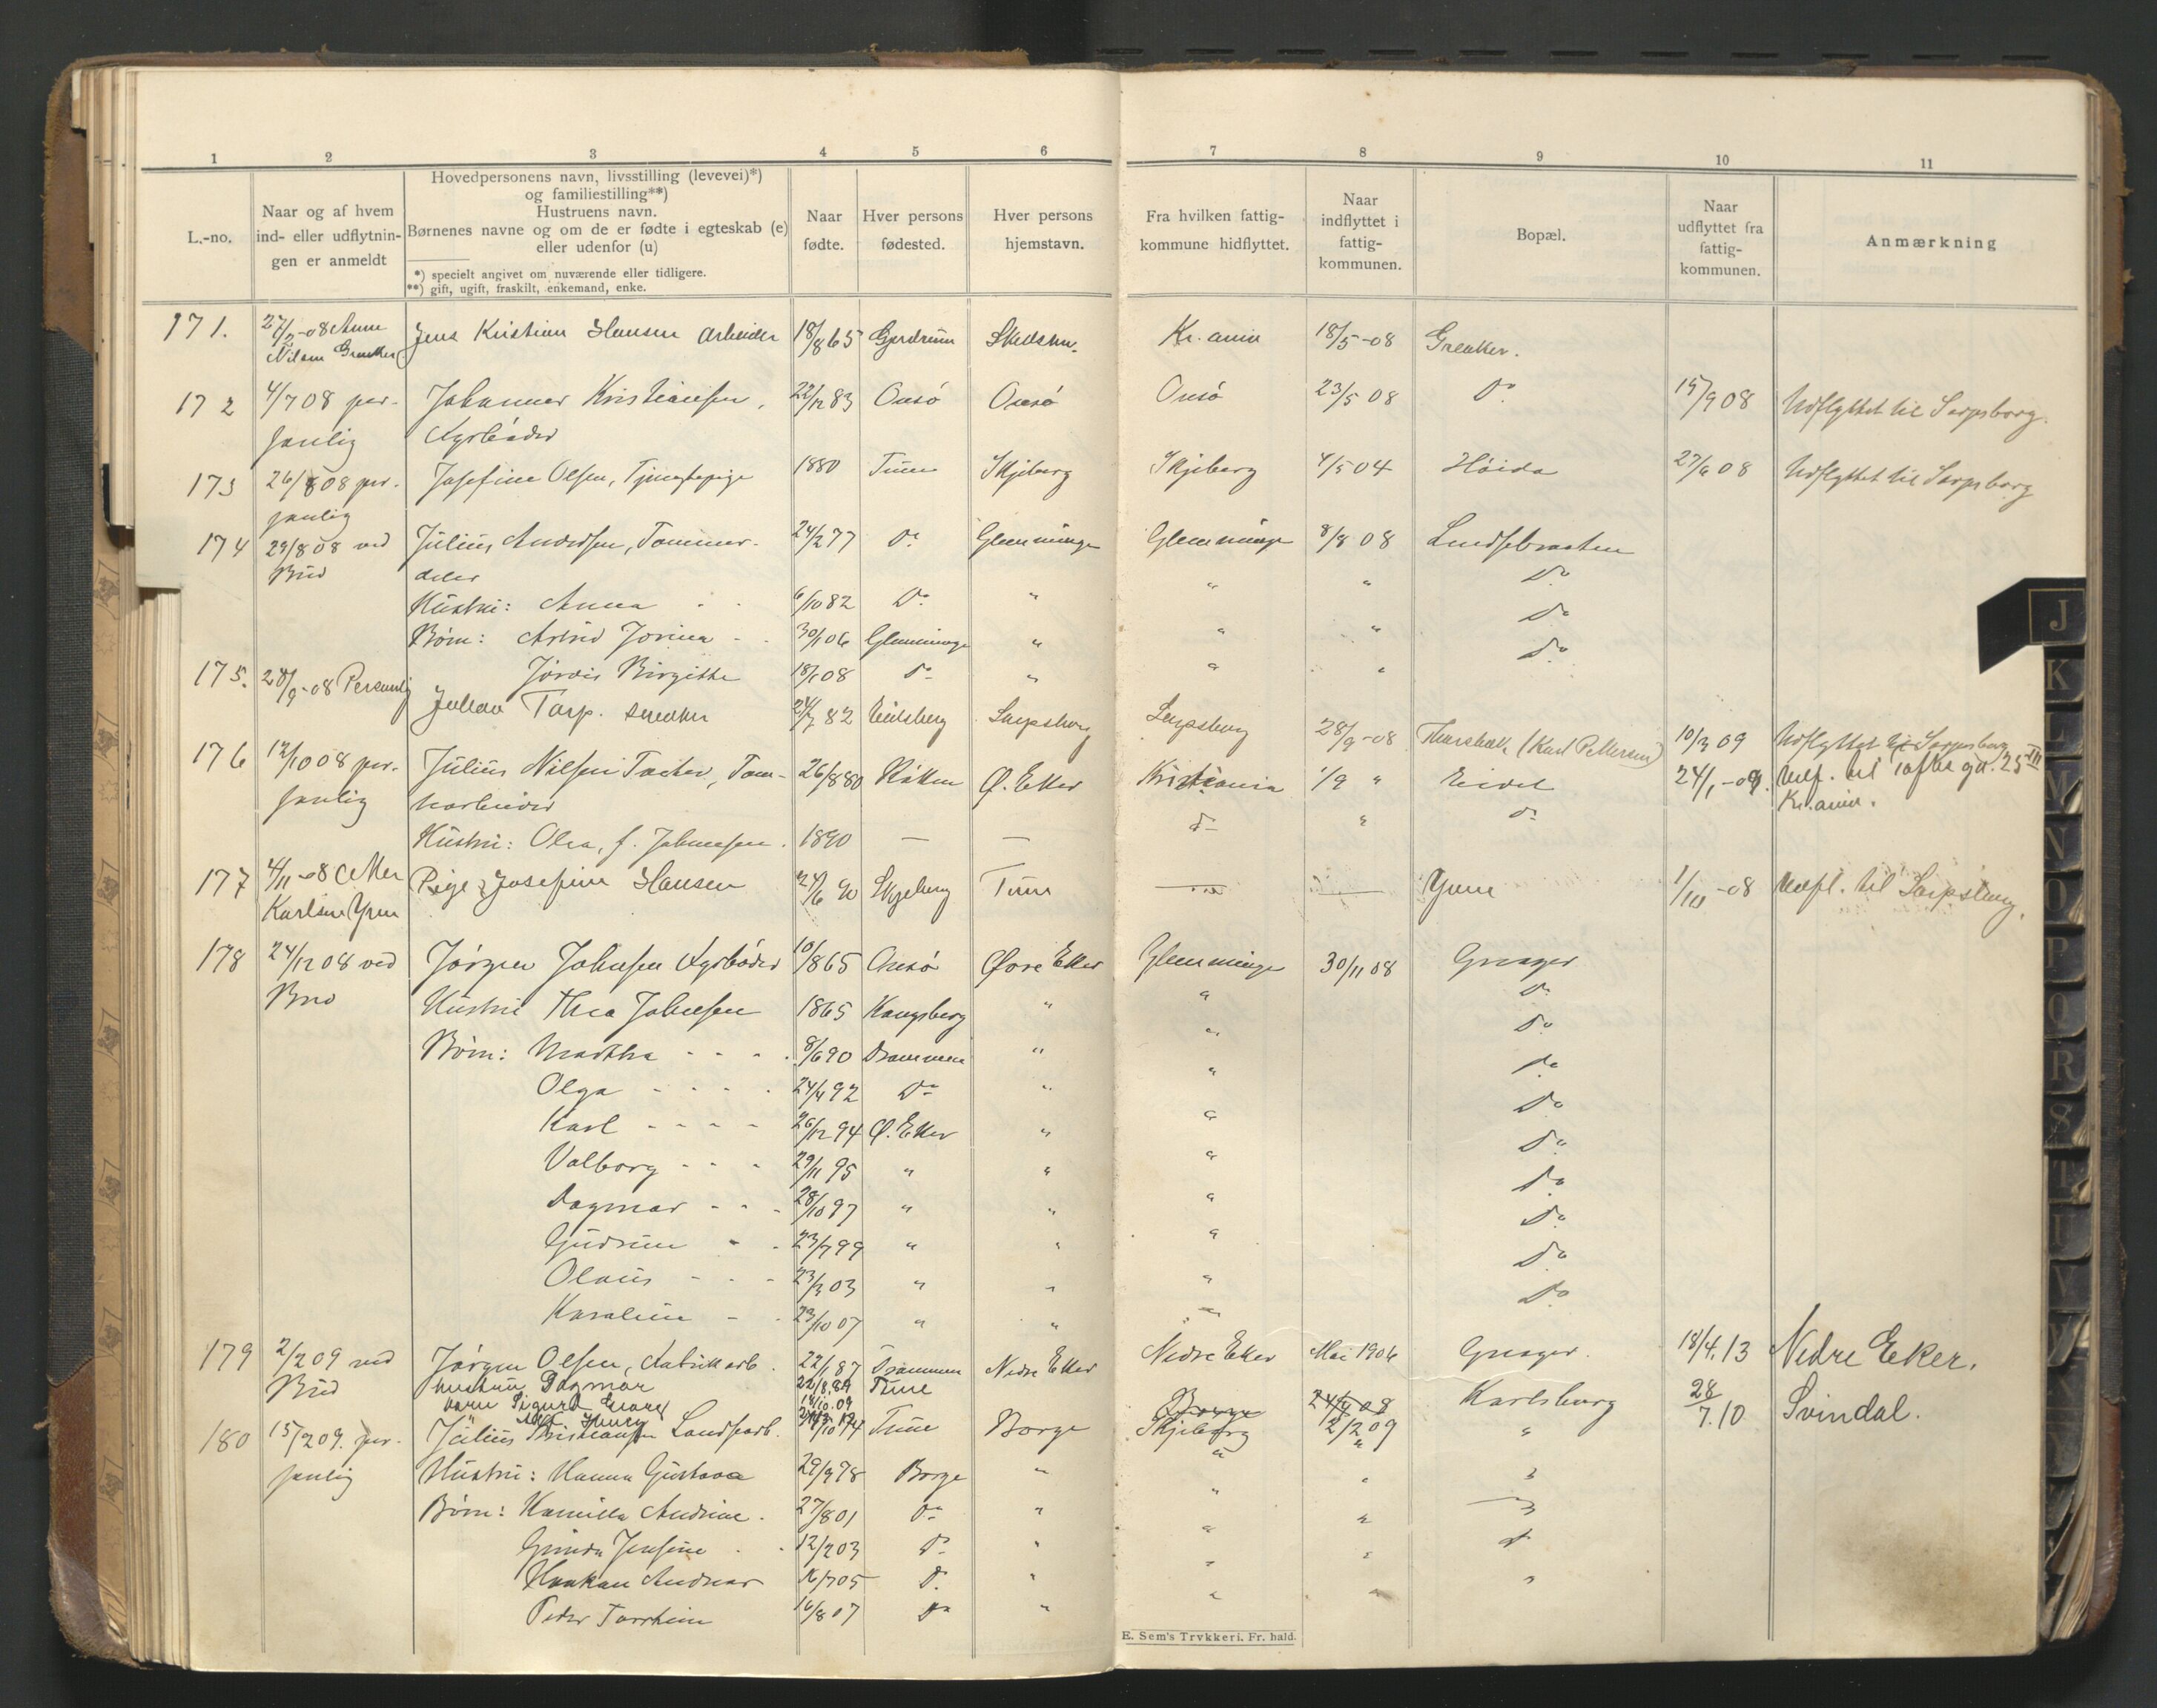 1 2 3 4 5 6 7 8 9 10 11
L.-no.
Naar og af hvem
ind- eller udflytnin-
gen er anmeldt
Hovedpersonens navn, livsstilling (levevei)*)
og familiestilling**)
Hustruens navn.
Børnenes navne og om de er fødte i egteskab (e)
eller udenfor (u)
*) specielt angivet om nuværende eller tidligere.
**) gift, ugift, fraskilt, enkemand, enke.
Naar
fødte.
Hver persons
fødested.
Hver persons
hjemstavn.
Fra hvilken fattig-
kommune hidflyttet.
Naar
indflyttet i
fattig-
kommunen.
Bopæl.
Naar
udflyttet fra
fattig-
kommunen.
Anmærkning
171. Jens Kristian Hansen Arbeider 18/8 65 Gjerdrum Kr.ania 18/5-08 Greaker.
172 4/7 08 per- Johannes Kristiansen, 22/12 83 Onsø Onsø Onsø 23/5 08 Do 15/9 08 Udflyttet til Sarpsborg.
sonlig
173 26/8 08 per- Josefine Olsen, Tjenestepige 1880 Tune Skjeberg Skjeberg 4/5 04 Høida 27/6 08 Udflyttet til Sarpsborg
sonlig
174 29/8 08 ved Julius Andersen, Tømmer- 24/2 77 Do Glemminge Glemminge 8/8 08
Bud deler " " Do
Hustru: Anna 6/10 82 Do " " " Do
Børn: Astrid Jorina 30/1 06 Glemminge " " " Do
Jørdis Birgitte 18/1 08 Do "
175. 28/9-08 Personlig Tarp. 82 Sarpsborg Sarpsborg 28/9-08 (Karl Pettersen) 10/3 09 Udflyttet til Sarpsborg
176 12/10 08 per- Julius Nilsen 26/8 80 Ø. Eker Kristiania 1/9 " Eidet 24/1-09. Udf. til
sonlig Kr.ania.
Hustru: Olea, f. Johnsen. 1890 — — Do " Do
177 4/11-08 Pige Josefine Hansen 24/6 90 Skjeberg Tune — — Yven Udfl. til Sarpsborg.
Karlsen Yven
178 24/12 08 ved Jørgen Johnsen 10/8 65 Onsø Øvre Eker Glemminge 30/11 08 Greager
Bud Hustru Thea Johnsen 1865 Kongsberg " " Do
Børn: Martha 8/6 90 Drammen " " Do
Olga 24/4 92 Do " " Do
Karl 26/12 94 Ø. Eker " " Do
Valborg 29/11 95 " " " Do
Dagmar 28/10 97 " " " Do
Gudrun 23/7 99 " " " Do
Olaus 23/3 03 " " " Do
Karoline 23/10 07 " " " Do
179 2/2 09 ved Jørgen Olsen, Fabrikarb. 22/1 87 Drammen Nedre Eker Nedre Eker Mai 1906 Greager. 18/4.13 Nedre Eker.
Bud hustru Dagmar 22/8.89 Tune
barn Sigurd 14/10.09
180 15/2 09. per- Julius Kristiansen Landsarb. Tune Borge Borge 24/9 08 Karlsborg 28/7.10 Svindal.
Skjeberg 2/2 09 "
sonlig Hustru: Hanna Gustava 29/9 78 Borge " " "
Børn: Kamilla Andrine. 27/8 01 Do " " "
Gunda Jensine 12/2 03 Do " " "
Haakon Andreas 16/7 05 Do " " "
Peder Torstein 16/8 07 Do " " "
E. Sem's Trykkeri. Fr. hald.
J
K
L
M
N
O
P
Q
R
S
T
U
V